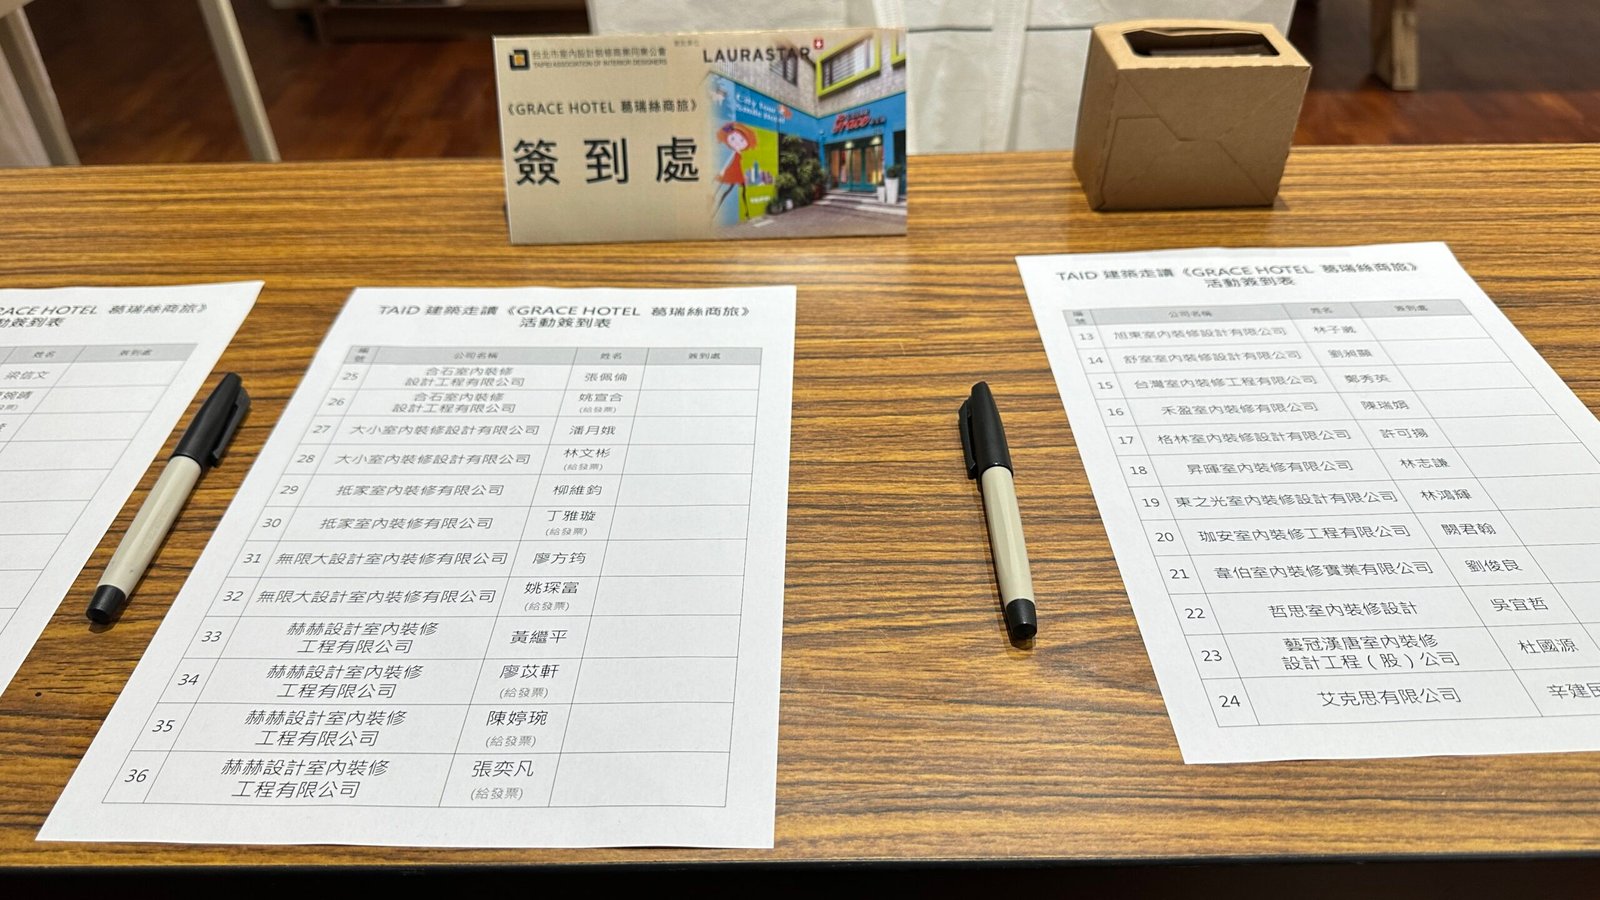 台北市室內設計裝修商業同業公會
TAIPEI ASSOCIATION OF INTERIOR DESIGNERS
LAURASTAR
《GRACE HOTEL 葛瑞絲商旅》
簽到處
Grace
RACE HOTEL 葛瑞絲商旅》
動簽到表
姓名 簽到處
梁信文
TAID 建築走讀《GRACE HOTEL 葛瑞絲商旅》
活動簽到表
編號 公司名稱 姓名 簽到處
25 合石室內裝修
設計工程有限公司 張佩倫
26 合石室內裝修
設計工程有限公司 姚宣合
(給發票)
27 大小室內裝修設計有限公司 潘月娥
28 大小室內裝修設計有限公司 林文彬
(給發票)
29 抵家室內裝修有限公司 柳維鈞
30 抵家室內裝修有限公司 丁雅璇
(給發票)
31 無限大設計室內裝修有限公司 廖方筠
32 無限大設計室內裝修有限公司 姚琛富
(給發票)
33 赫赫設計室內裝修
工程有限公司 黃繼平
34 赫赫設計室內裝修
工程有限公司 廖苡軒
(給發票)
35 赫赫設計室內裝修
工程有限公司 陳婷琬
(給發票)
36 赫赫設計室內裝修
工程有限公司 張奕凡
(給發票)
TAID 建築走讀《GRACE HOTEL 葛瑞絲商旅》
活動簽到表
編號 公司名稱 姓名 簽到處
13 旭東室內裝修設計有限公司 林子崴
14 舒室室內裝修設計有限公司 劉昶顯
15 台灣室內裝修工程有限公司 鄭秀英
16 禾盈室內裝修有限公司 陳瑞娟
17 格林室內裝修設計有限公司 許可揚
18 昇暉室內裝修有限公司 林志謙
19 東之光室內裝修設計有限公司 林鴻輝
20 珈安室內裝修工程有限公司 闕君翰
21 韋伯室內裝修實業有限公司 劉俊良
22 哲思室內裝修設計 吳宜哲
23 藝冠漢唐室內裝修
設計工程（股）公司 杜國源
24 艾克思有限公司 辛建民